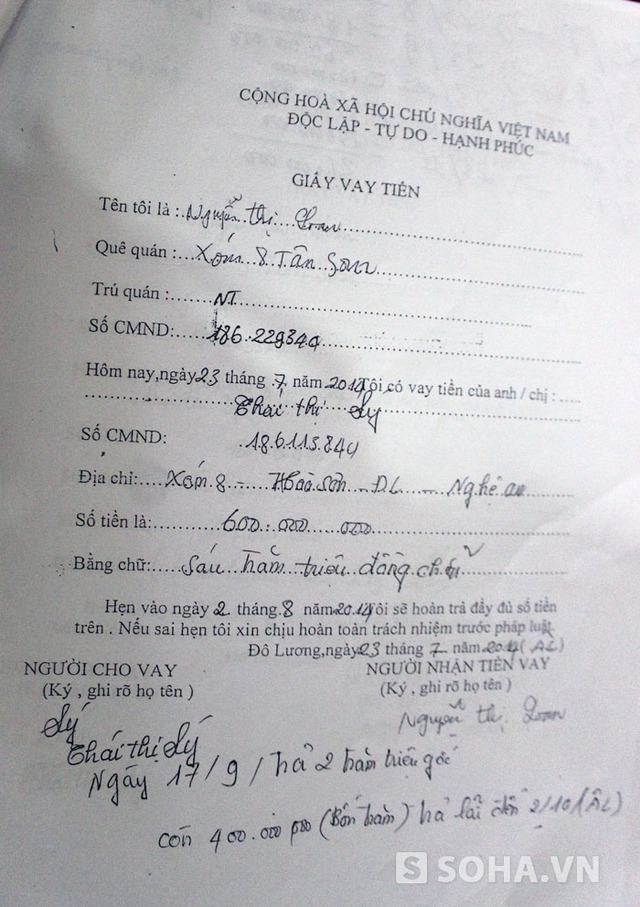 CỘNG HOÀ XÃ HỘI CHỦ NGHĨA VIỆT NAM
ĐỘC LẬP - TỰ DO - HẠNH PHÚC
GIẤY VAY TIỀN
Tên tôi là : Nguyễn Thị Loan
Quê quán : Xóm 8 Tân Sơn
Trú quán : NT
Số CMND: 186.229344
Hôm nay,ngày 23 tháng 7 năm 2014 Tôi có vay tiền của anh / chị :
Thái thị Lý
Số CMND: 186113844
Địa chỉ: Xóm 8 - Hoà Sơn - ĐL - Nghệ an
Số tiền là: 600.000.000
Bằng chữ: Sáu trăm triệu đồng chẵn
Hẹn vào ngày 2 tháng 8 năm 2014 Tôi sẽ hoàn trả đầy đủ số tiền
trên . Nếu sai hẹn tôi xin chịu hoàn toàn trách nhiệm trước pháp luật.
Đô Lương,ngày 23 tháng 7 năm 2014 (AL)
NGƯỜI CHO VAY
(Ký , ghi rõ họ tên )
NGƯỜI NHẬN TIỀN VAY
(Ký , ghi rõ họ tên )
Lý
Thái thị Lý
Nguyễn thị Loan
Ngáy 17/9/ trả 2 trăm triệu gốc
còn 400.000 000 (Bốn trăm) trả lãi đến 2/10 (ÂL)
SOHA.VN